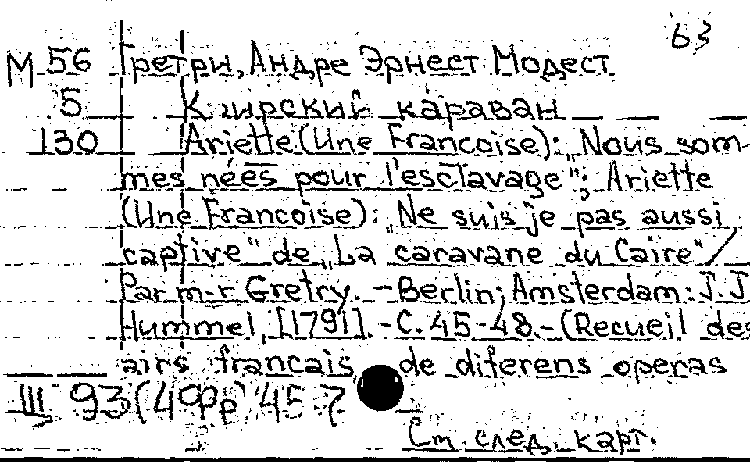 63
М 56 Гретри, Андре Эрнест Модест
5 Каирский караван
130 Ariette (Une Francoise): „Nous som-
mes nées pour l'esclavage"; Ariette
(Une Francoise): „Ne suis je pas aussi
captive" de „La caravane du Caire" /
Par m-r Gretry. - Berlin; Amsterdam: J.J.
Hummel, [1791]. - С. 45-48. - (Recueil des
airs francais de diferens operas
III 93 (4ФРр) 45
См. след. карт.